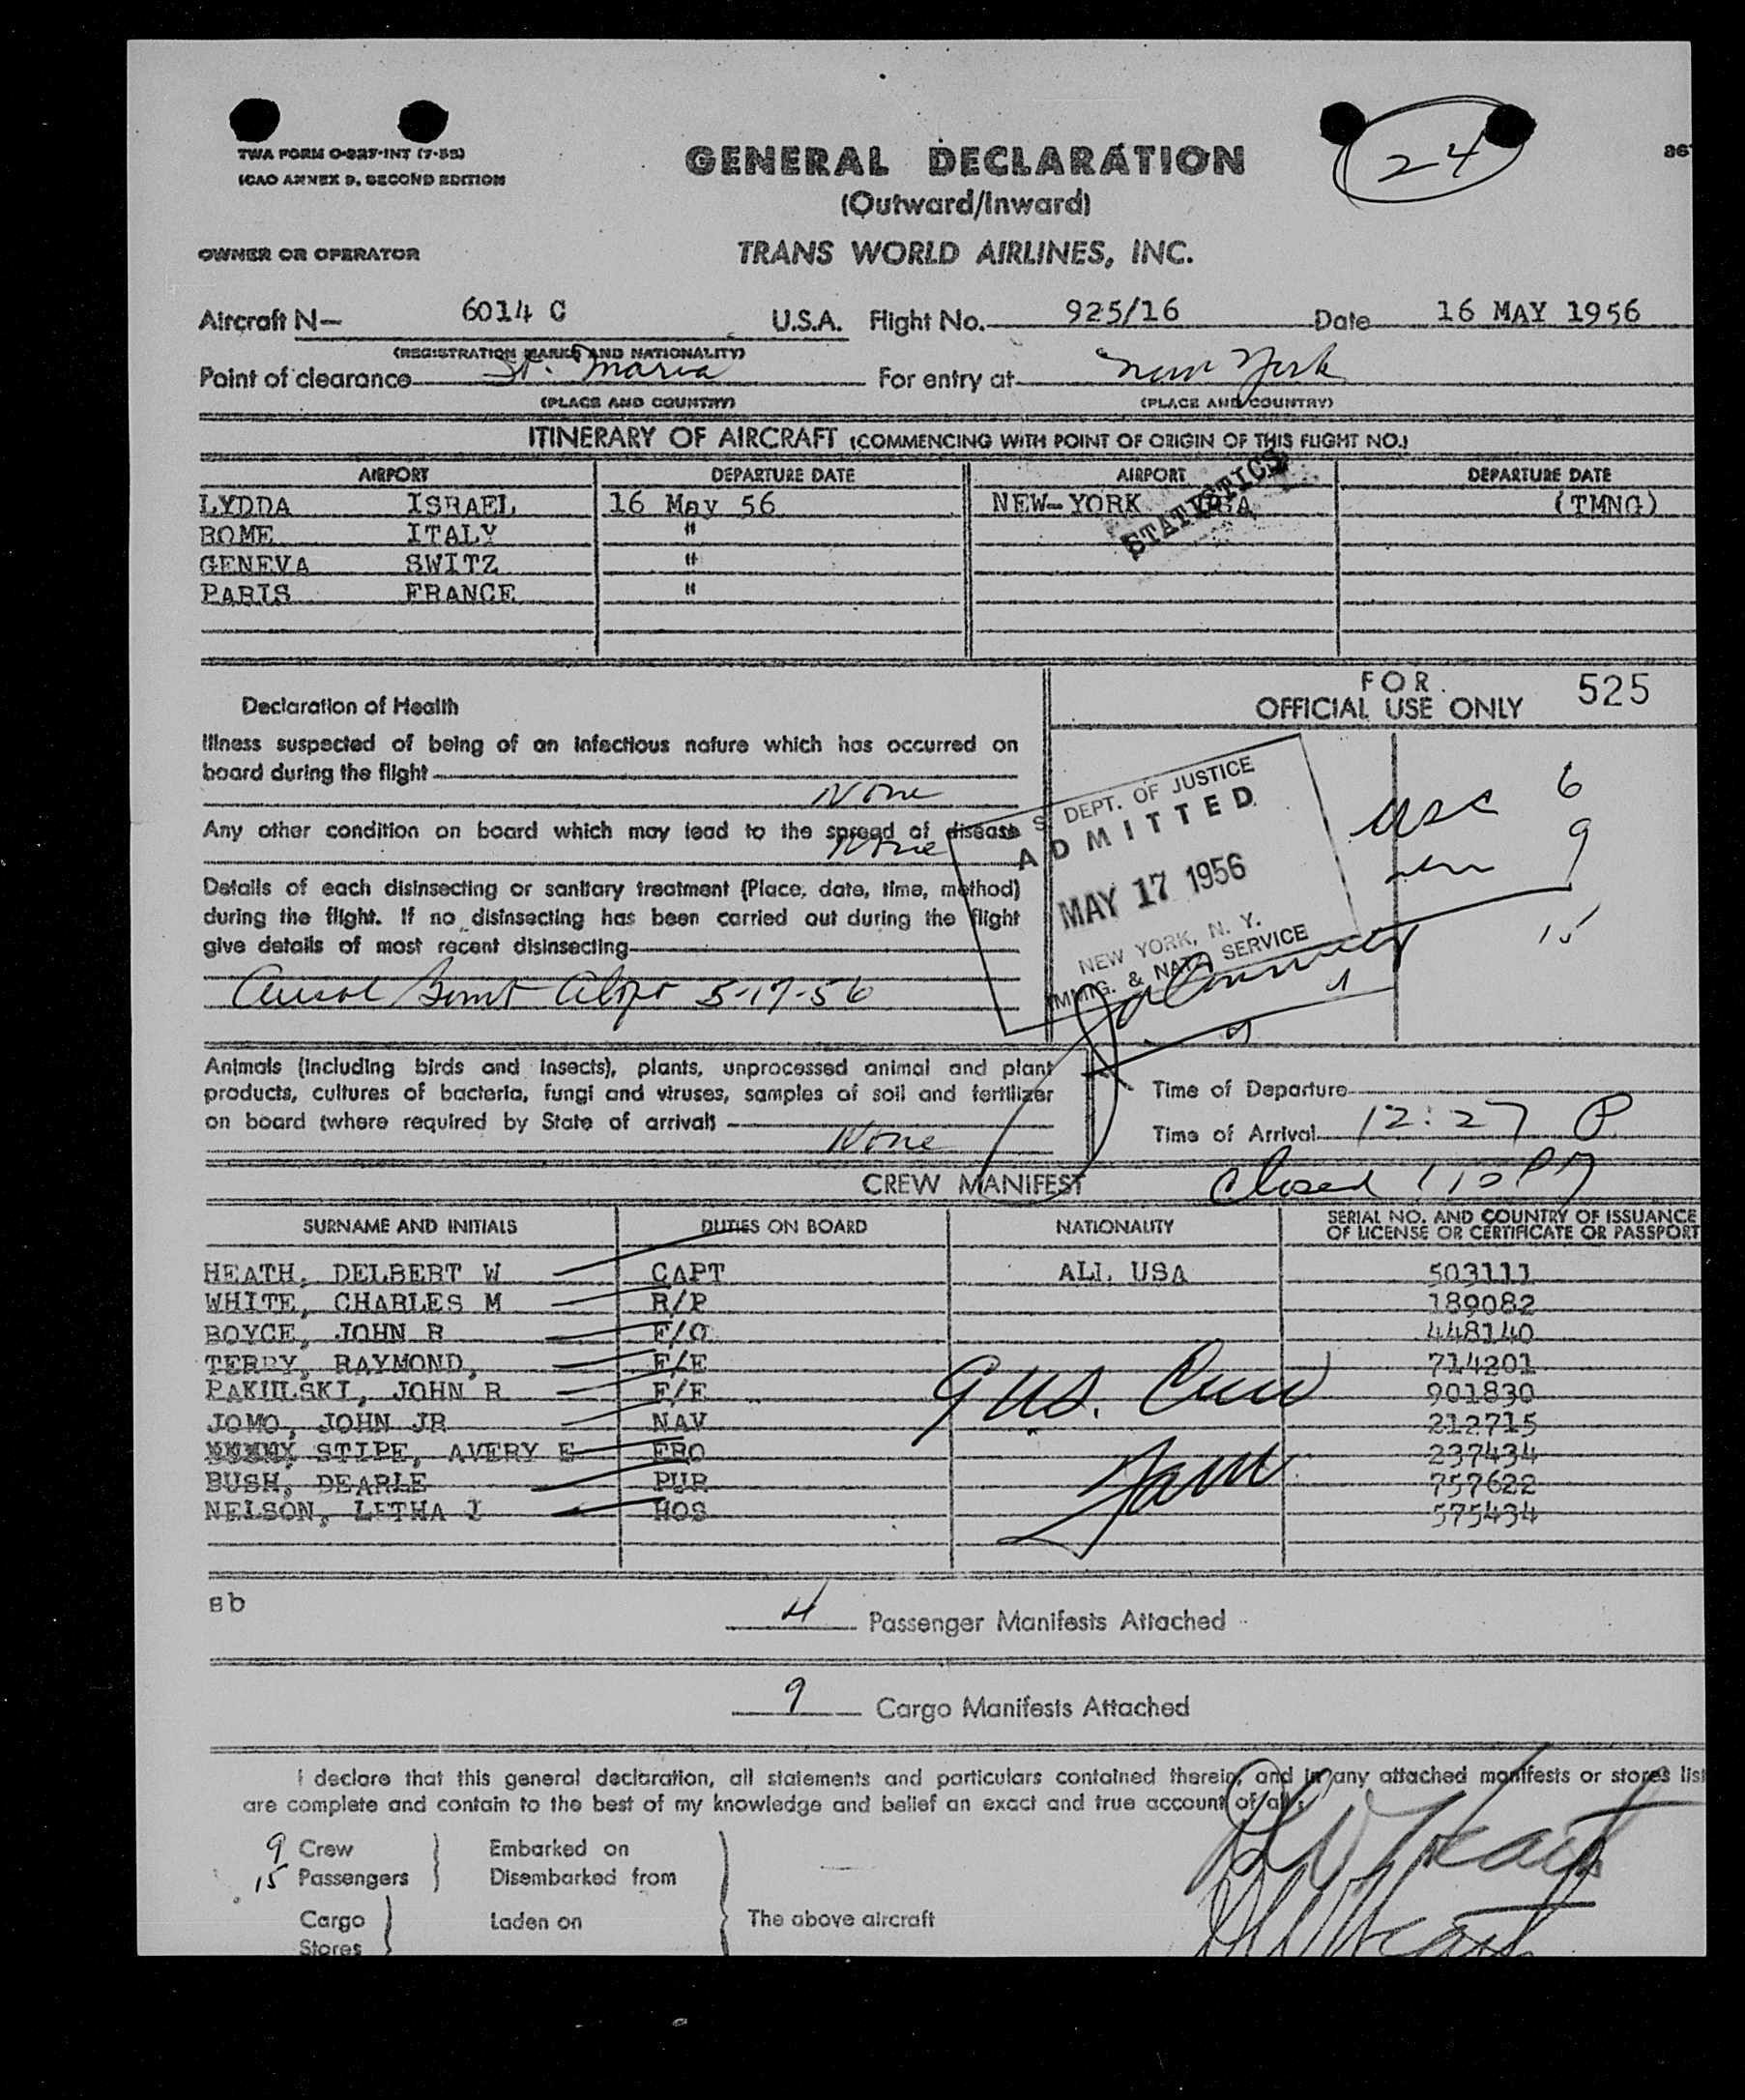 24
867
TWA FORM O-927-INT (7-55)
ICAO ANNEX 9, SECOND EDITION
GENERAL DECLARATION
(Outward/Inward)
OWNER OR OPERATOR TRANS WORLD AIRLINES, INC.
Aircraft N- 6014 C U.S.A. Flight No. 925/16 Date 16 MAY 1956
(REGISTRATION MARKS AND NATIONALITY)
Point of clearance St. Maria For entry at New York
(PLACE AND COUNTRY) (PLACE AND COUNTRY)
ITINERARY OF AIRCRAFT (COMMENCING WITH POINT OF ORIGIN OF THIS FLIGHT NO.)
AIRPORT DEPARTURE DATE AIRPORT DEPARTURE DATE
LYDDA ISRAEL 16 May 56 NEW-YORK USA (TMNG)
STATISTICS
ROME ITALY "
GENEVA SWITZ "
PARIS FRANCE "
FOR
OFFICIAL USE ONLY 525
Declaration of Health
Illness suspected of being of an infectious nature which has occurred on
board during the flight
None
Any other condition on board which may lead to the spread of disease
None
Details of each disinsecting or sanitary treatment (Place, date, time, method)
during the flight. If no disinsecting has been carried out during the flight
give details of most recent disinsecting
5-17-56
S. DEPT. OF JUSTICE
ADMITTED
MAY 17 1956
NEW YORK, N. Y.
IMMIG. & NATZ. SERVICE
usc 6
9
15
Animals (including birds and insects), plants, unprocessed animal and plant
products, cultures of bacteria, fungi and viruses, samples of soil and fertilizer
on board (where required by State of arrival)
None
Time of Departure
Time of Arrival 12:27 P
CREW MANIFEST Closed 110 PM
SURNAME AND INITIALS DUTIES ON BOARD NATIONALITY SERIAL NO. AND COUNTRY OF ISSUANCE
OF LICENSE OR CERTIFICATE OR PASSPORT
HEATH, DELBERT W CAPT ALL USA 503111
WHITE, CHARLES M R/P 189082
BOYCE, JOHN R F/O 448140
TERRY, RAYMOND, F/E 714201
PAKULSKI, JOHN R F/E 901830
JOMO, JOHN JR NAV 212715
STIPE, AVERY E FRO 237434
BUSH, DEARLE PUR 757622
NELSON, LETHA J HOS 575434
9 US. Crew
sb
4 Passenger Manifests Attached
9 Cargo Manifests Attached
I declare that this general declaration, all statements and particulars contained therein, and in any attached manifests or stores list
are complete and contain to the best of my knowledge and belief an exact and true account of all:
9 Crew Embarked on
15 Passengers Disembarked from
Cargo Laden on The above aircraft
Stores
DW Heath
DW Heath